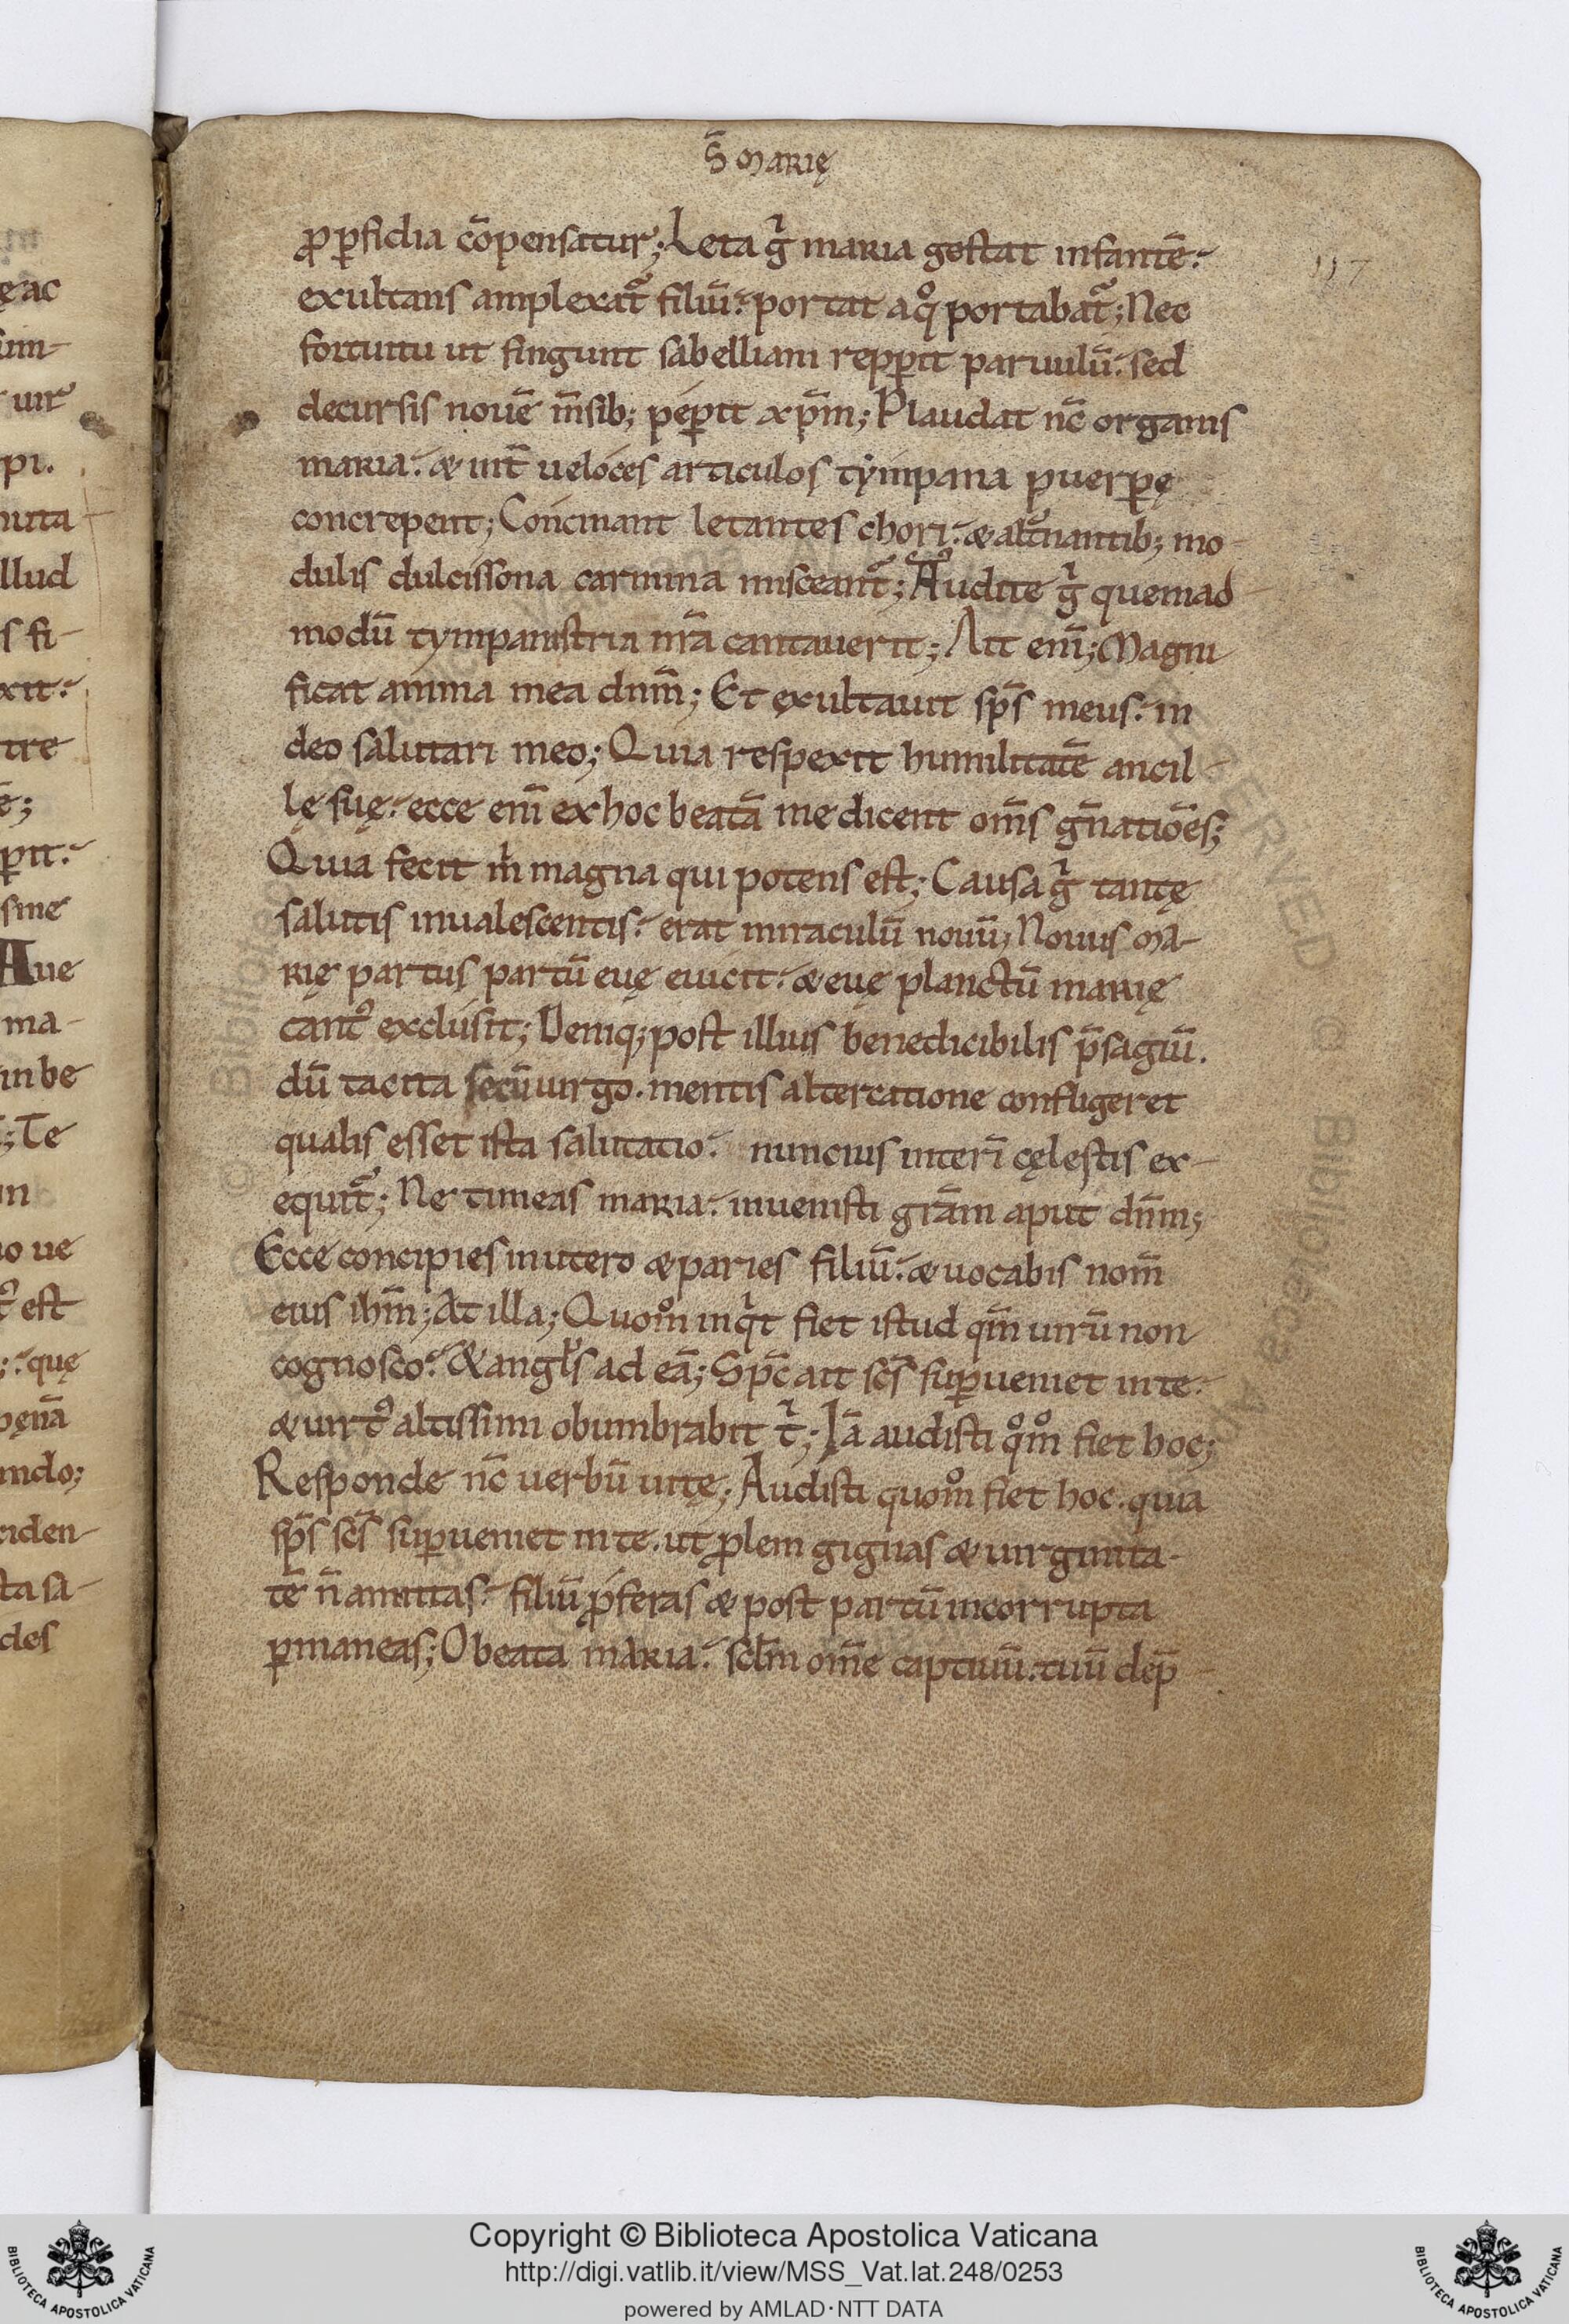 S̄ MARIę
ꝓ ꝑfidia cōpensatur; Leta gͥ maria gestat infantē.
exultans amplexat᷑ filiū. portat a qͦ portabat᷑; Nec
fortuitu ut fingunt sabelliani repꝑit paruulū. sed
decursis nouē m̄sib; peꝑit xp̄m; Plaudat nc̄ organis
maria. & int̄ ueloces articulos tympana puerꝑę
concrepent; Concinant letantes chori. & alt̄nantib; mo-
dulis dulcissona carmina misceant᷑; Audite gͥ quemad-
modū tympanistria nr̄a cantauerit; Ait eni̅; Magni-
ficat anima mea dnm̄; Et exultauit sp̄s meus. in
deo salutari meo; Quia respexit humilitatē ancil-
lę suę. ecce eni̅ ex hoc beatā me dicent om̄s gn̄atio̅es;
Quia fecit mͥ magna qui potens est; Causa gͥ tantę
salutis inualescentis. erat miraculū nouū; Nouus MA-
RIę partus partū euę euicit. & euę planctū marię
cantꝰ exclusit; Deniq; post illius benedicibilis p̄sagiū.
dū tacita secū uirgo. mentis altercatione confligeret
qualis esset ista salutatio. nuncius interi̅ cęlestis ex-
equit᷑; Ne timeas maria. inuenisti gr̄am aput dn̄m;
Ecce concipies in utero & paries filiū. & uocabis nom̄
eius ihm̄; At illa; Quom̊ inqͥt fiet istud qm̄ uirū non
cognosco. & angl̄s ad eā; Sp̄c ait sc̄s suꝑueniet in te.
& uirtꝰ altissimi obumbrabit tͥ; Iā audisti qͦm̊ fiet hoc;
Responde nc̄ uerbū uitę; Audisti quom̊ fiet hoc. quia
sp̄s sc̄s suꝑueniet in te. ut ꝓlem gignas & uirginita-
tē n̄ amittas. filiū ꝓferas & post partū incorrupta
ꝑmaneas; O beata maria. sc̄lm om̄e captiuū. tuū dep̄-
ęac
uir
pi.
nuta
llud
s fi-
xit.
tre
ē;
ꝑit.
sine
Aue
ma-
in be
; Te
in
io ue
tꝰ est
;. quę
pęnā
ndo;
ciden-
ta sa-
des
© Biblioteca Apostolica Vaticana
Copyright © Biblioteca Apostolica Vaticana
http://digi.vatlib.it/view/MSS_Vat.lat.248/0253
powered by AMLAD·NTT DATA
BIBLIOTECA APOSTOLICA VATICANA
BIBLIOTECA APOSTOLICA VATICANA